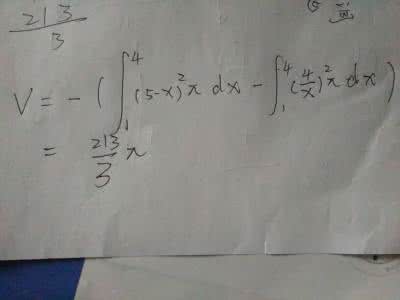 213/3
V = - ( ∫₁⁴ (5-x)²π dx - ∫₁⁴ (4/x)²π dx )
= 213/3 π